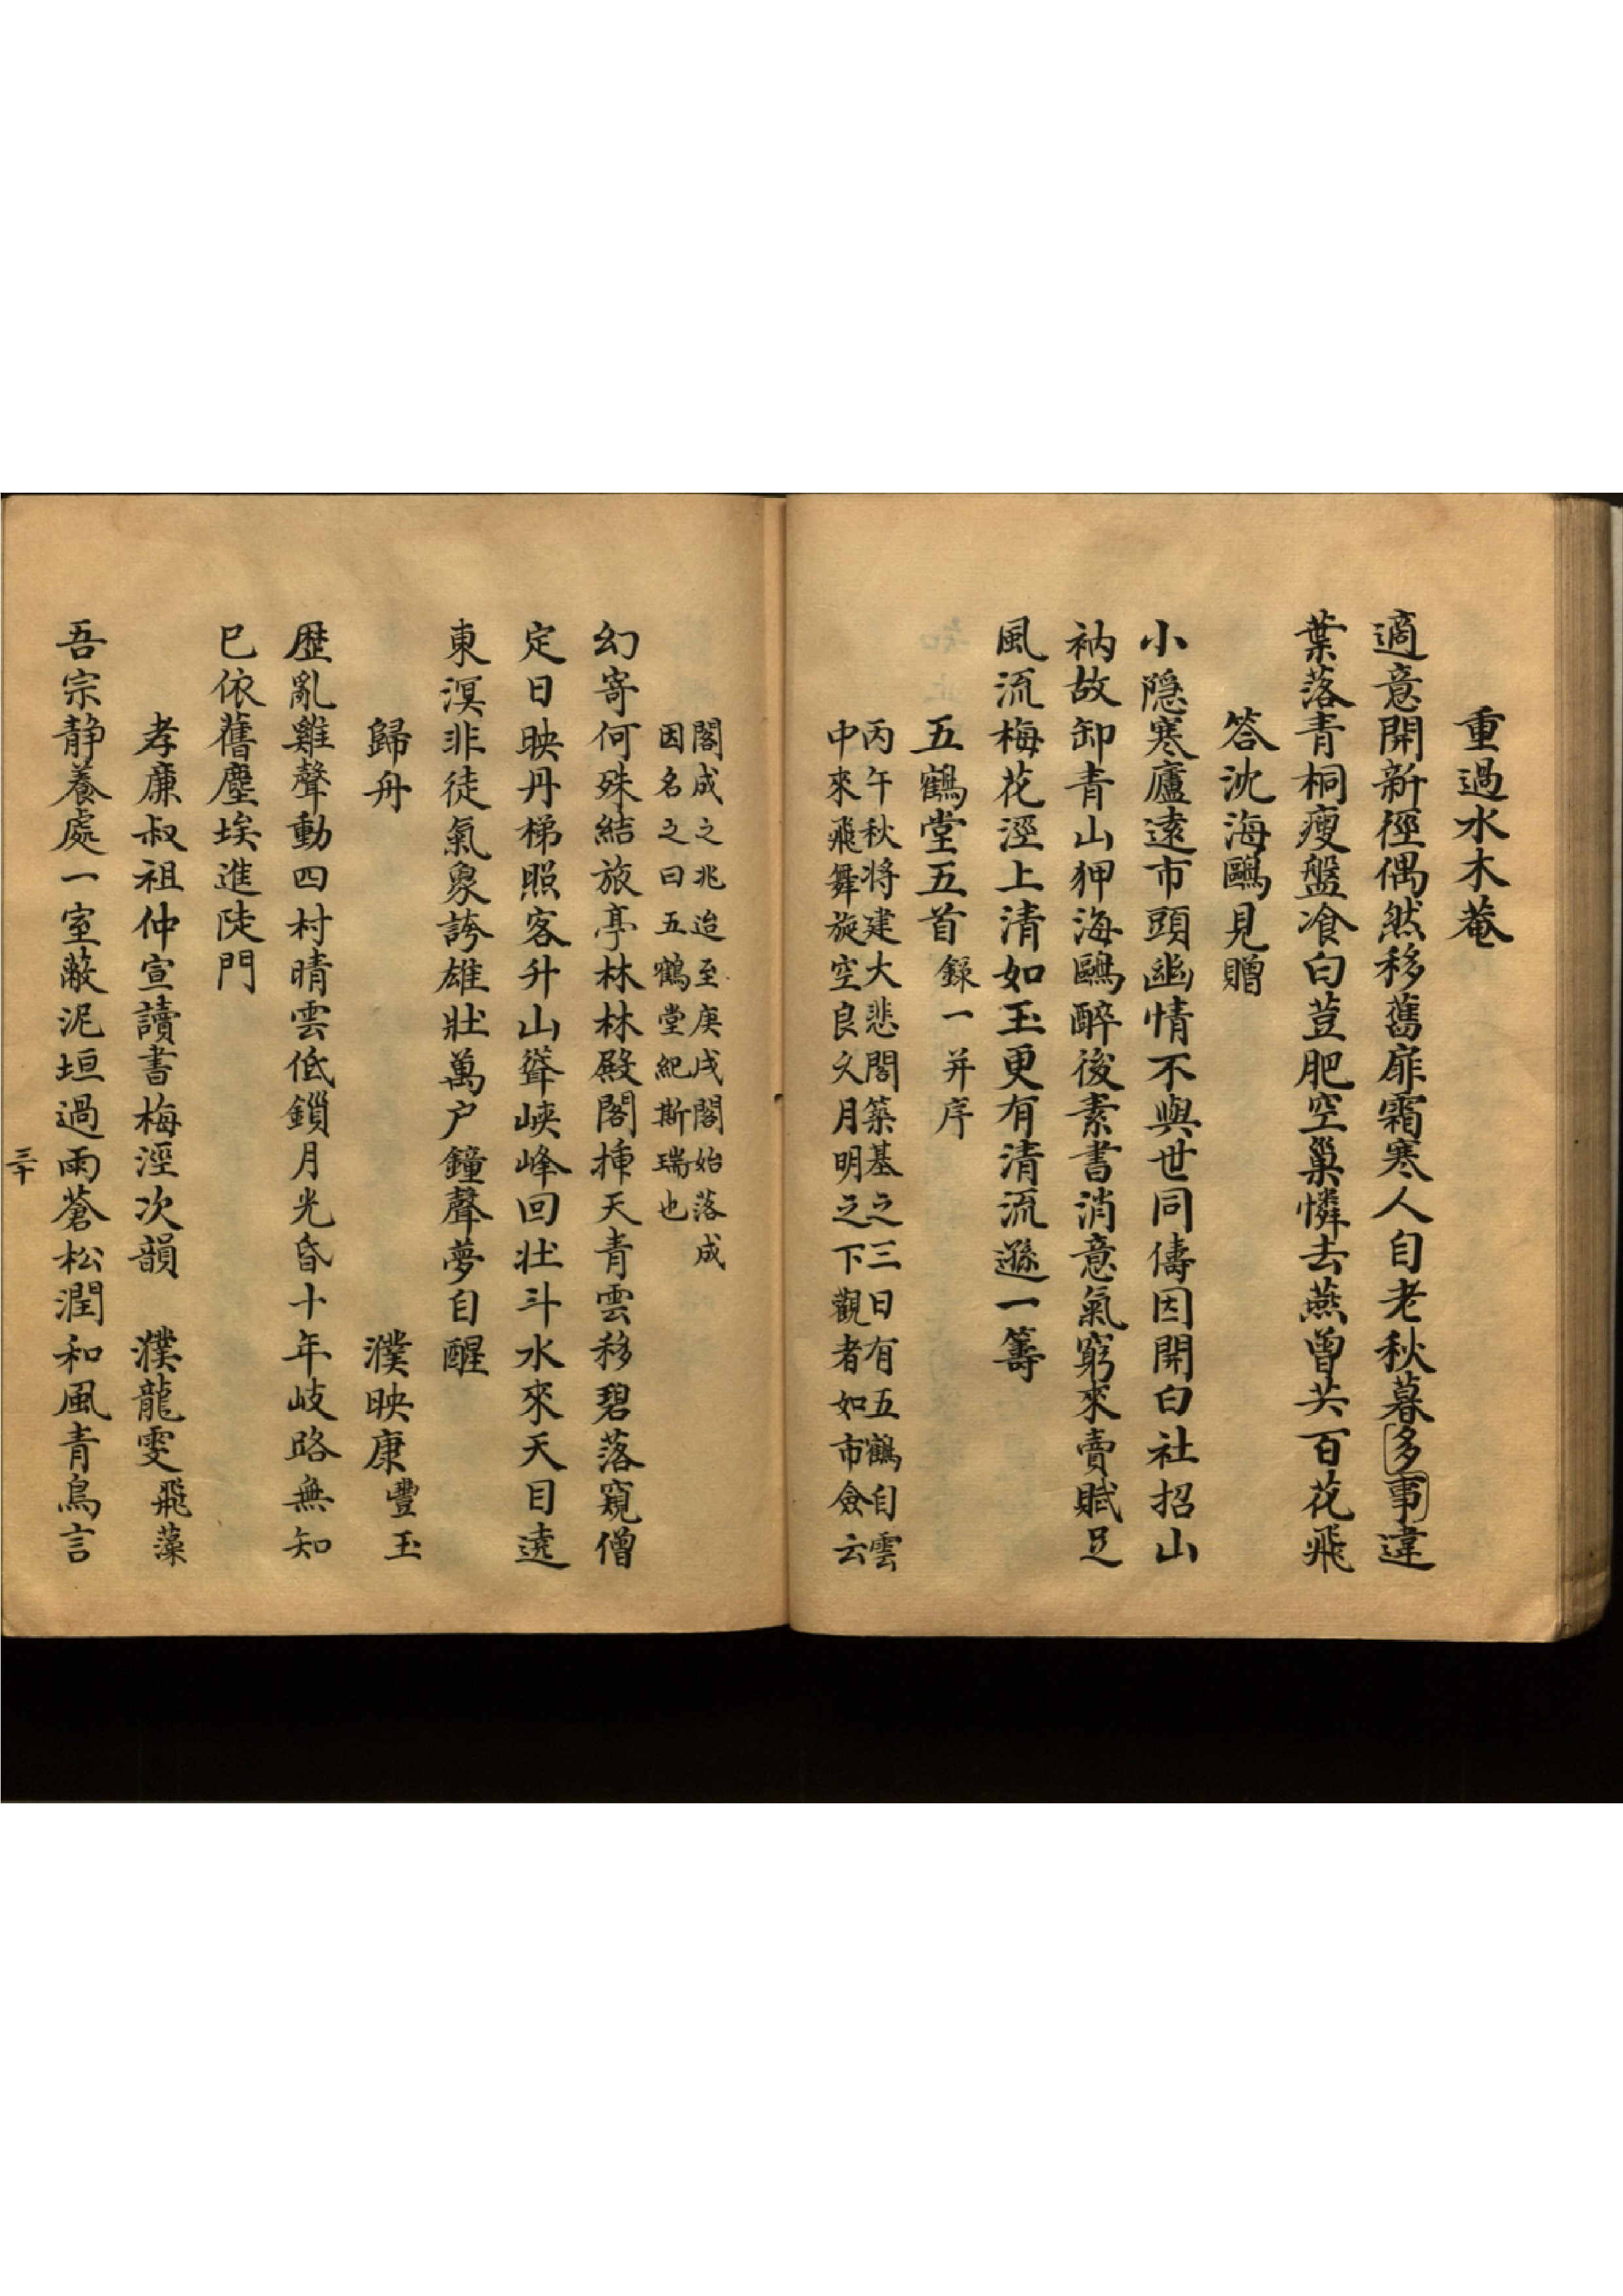 重過水木菴
適意開新徑偶然移舊扉霜寒人自老秋暮多事違
葉落青桐瘦盤飡白荳肥空巢憐去燕曾共百花飛
答沈海鷗見贈
小隱寒廬遠市頭幽情不與世同儔因開白社招山
衲故卸青山狎海鷗醉後素書消意氣窮來賣賦足
風流梅花涇上清如玉更有清流遜一籌
五鶴堂五首 錄一并序
丙午秋将建大悲閣築基之三日有五鶴自雲
中來飛舞旋空良久月明之下觀者如市僉云
閣成之兆迨至庚戌閣始落成
因名之曰五鶴堂紀斯瑞也
幻寄何殊結旅亭林林殿閣揷天青雲移碧落窺僧
定日映丹梯照客升山聳峽峰回壯斗水來天目遶
東溟非徒氣象誇雄壯萬户鐘聲夢自醒
歸舟 濮映康豐玉
歴亂雞聲動四村晴雲低鎖月光昏十年岐路無知
巳依舊塵埃進陡門
孝廉叔祖仲宣讀書梅涇次韻 濮龍雯飛藻
吾宗静養處一室蔽泥垣過雨蒼松潤和風青鳥言
三十